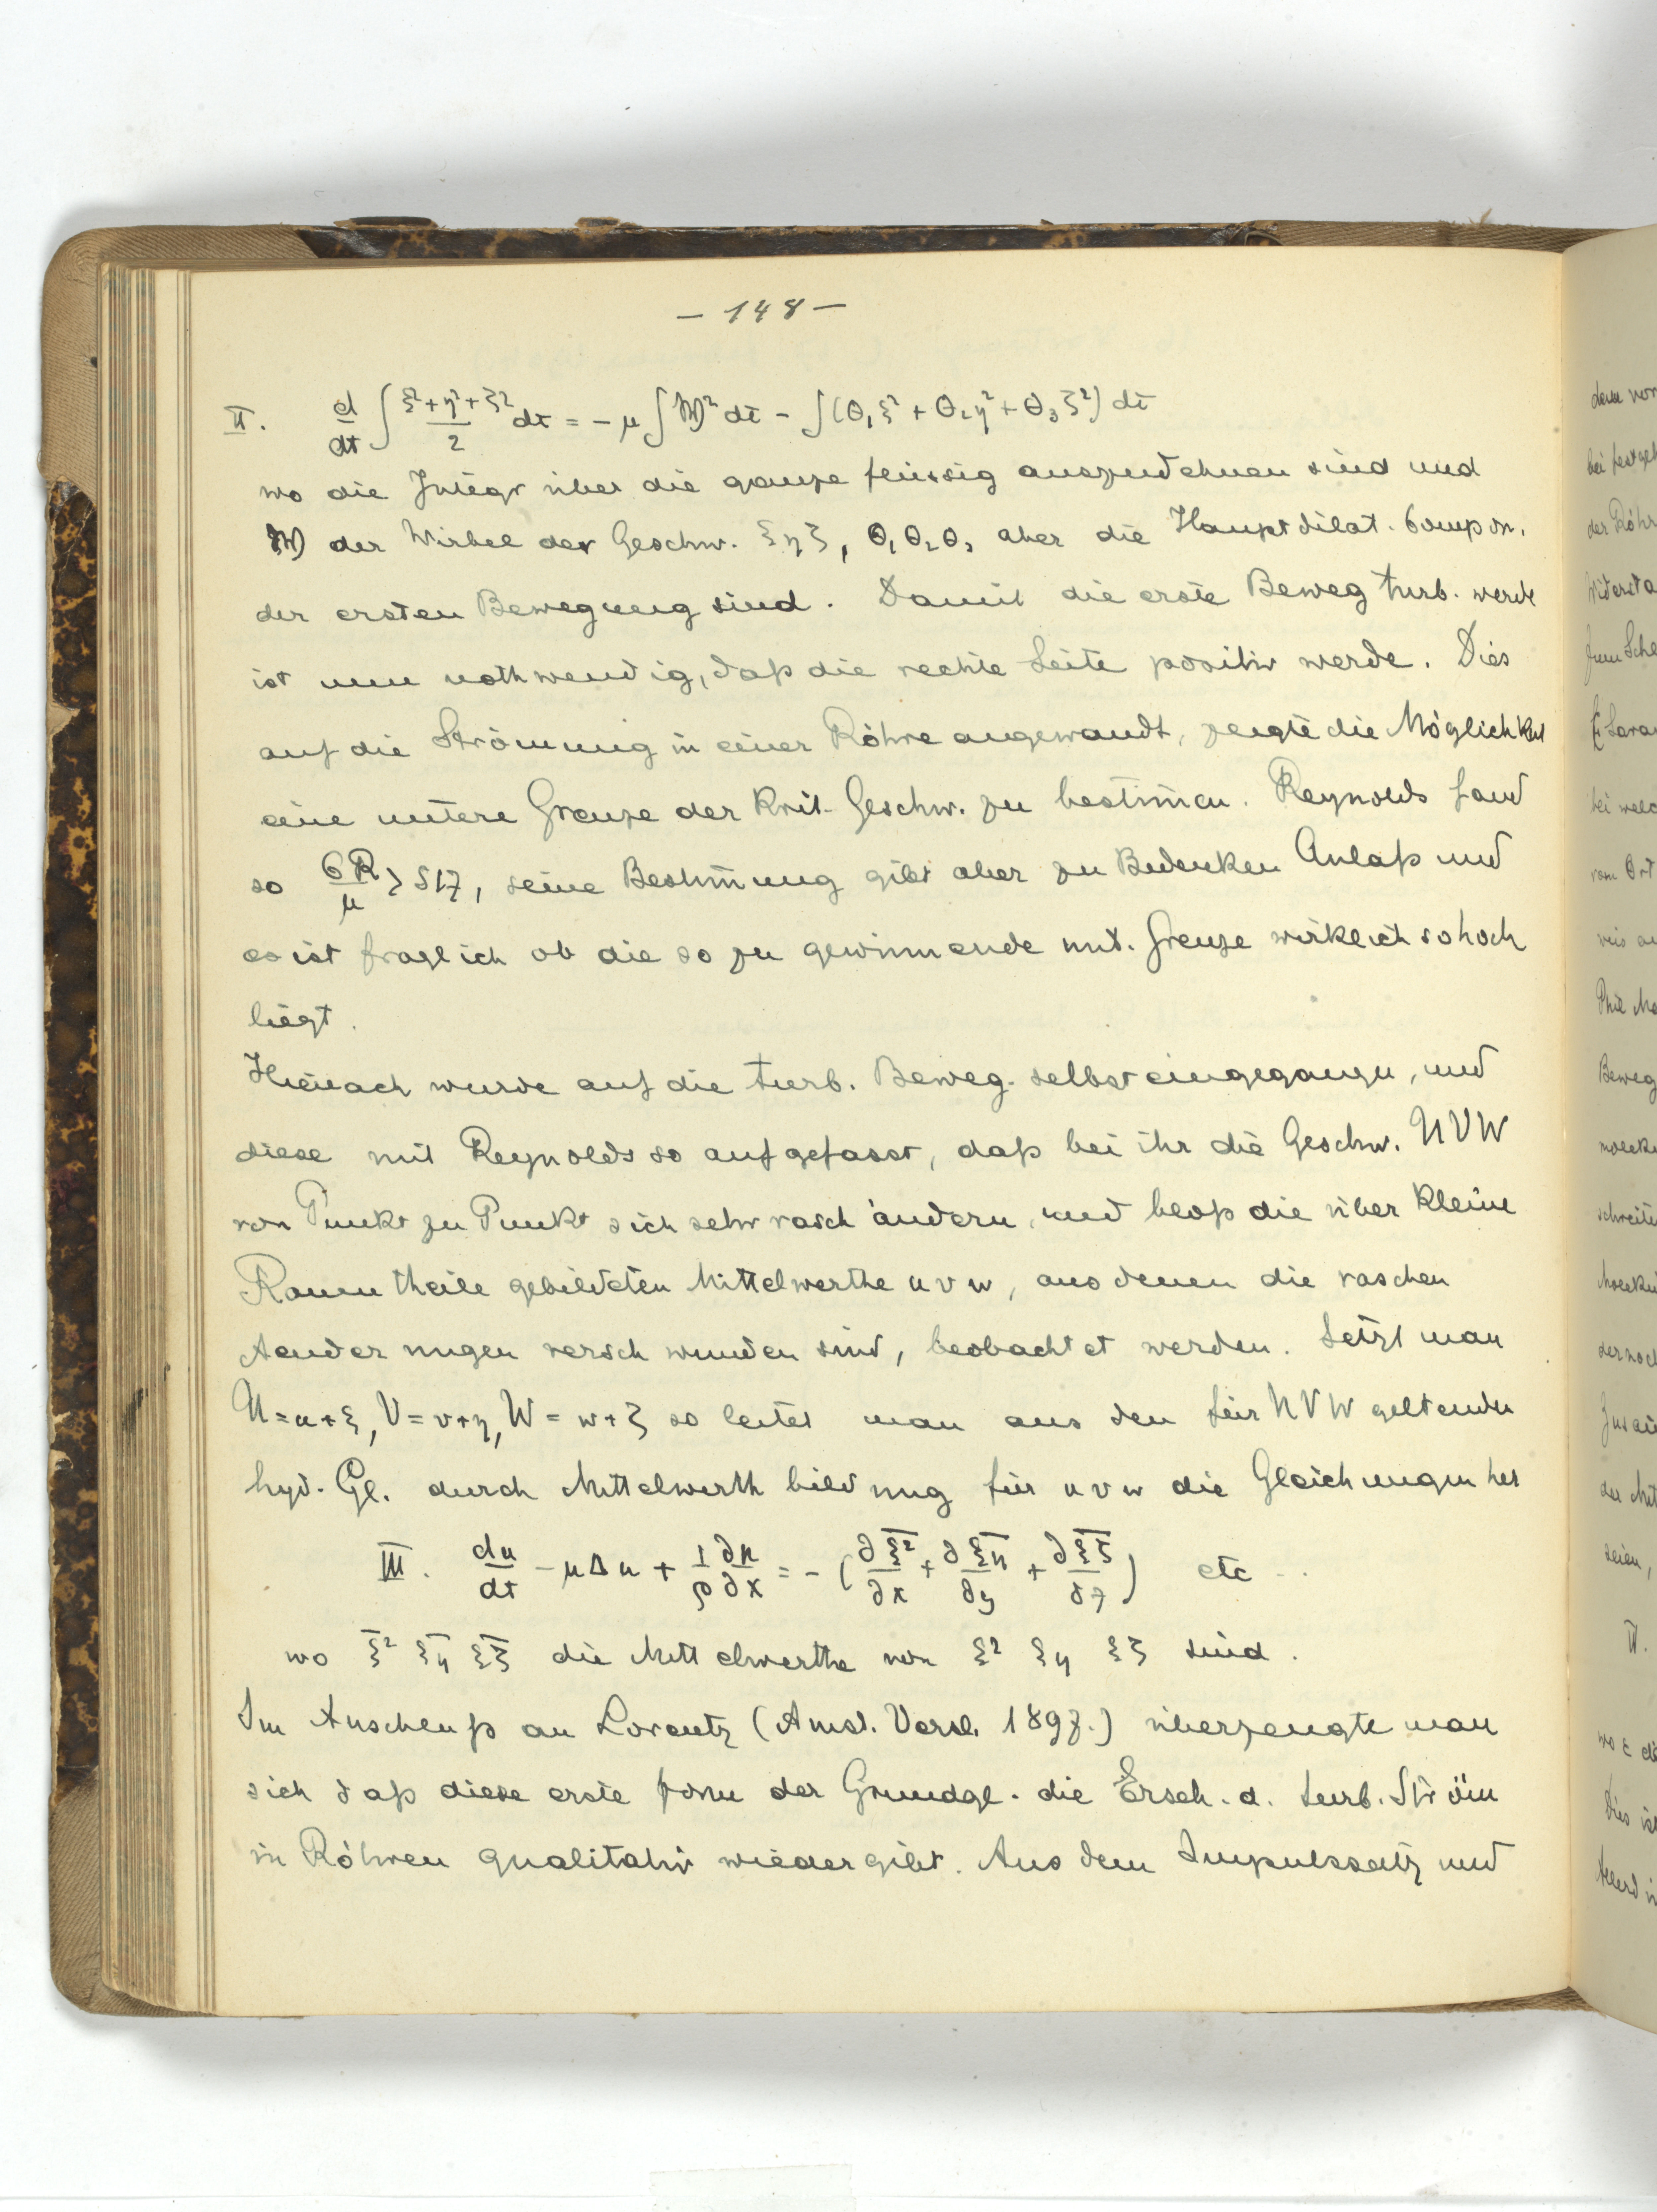 – 148 –
II. d/dt ∫ (ξ²+η²+ζ²)/2 dτ = – μ ∫ 𝔚² dτ – ∫ (θ₁ξ² + θ₂η² + θ₃ζ²) dτ
wo die Integr über die ganze flüssig auszudehnen sind und
𝔚 der Wirbel der Geschw. ξηζ, θ₁θ₂θ₃ aber die Hauptdilat. Compon.
der ersten Bewegung sind. Damit die erste Beweg turb. werde
ist nun nothwendig, daß die rechte Seite positiv werde. Dies
auf die Strömung in einer Röhre angewandt, zeigte die Möglichkeit
eine untere Grenze der krit. Geschw. zu bestim̄en. Reynolds fand
so σR/μ > 517, seine Bestim̄ung gibt aber zu Bedenken Anlaß und
es ist fraglich ob die so zu gewinnende unt. Grenze wirklich so hoch
liegt.
Hienach wurde auf die turb. Beweg. selbst eingegangen, und
diese mit Reynolds so aufgefasst, daß bei ihr die Geschw. U V W
von Punkt zu Punkt sich sehr rasch ändern, und bloß die über kleine
Raumtheile gebildeten Mittelwerthe u v w, aus denen die raschen
Aenderungen verschwunden sind, beobachtet werden. Setzt man
U = u+ξ, V = v+η, W = w+ζ so leitet man aus den für U V W geltenden
hyd. Gl. durch Mittelwerthbildung für u v w die Gleichungen her
III. du/dt – μΔu + 1/ρ ∂p/∂x = – (∂ξ̅²/∂x + ∂ξ̅η̅/∂y + ∂ξ̅ζ̅/∂z) etc ..
wo ξ̅² ξ̅η̅ ξ̅ζ̅ die Mittelwerthe von ξ² ξη ξζ sind.
Im Anschluß an Lorentz (Amst. Versl. 1897.) überzeugte man
sich daß diese erste Form der Grundgl. die Ersch. d. turb. Ström
in Röhren qualitativ wiedergibt. Aus dem Impulssatz und